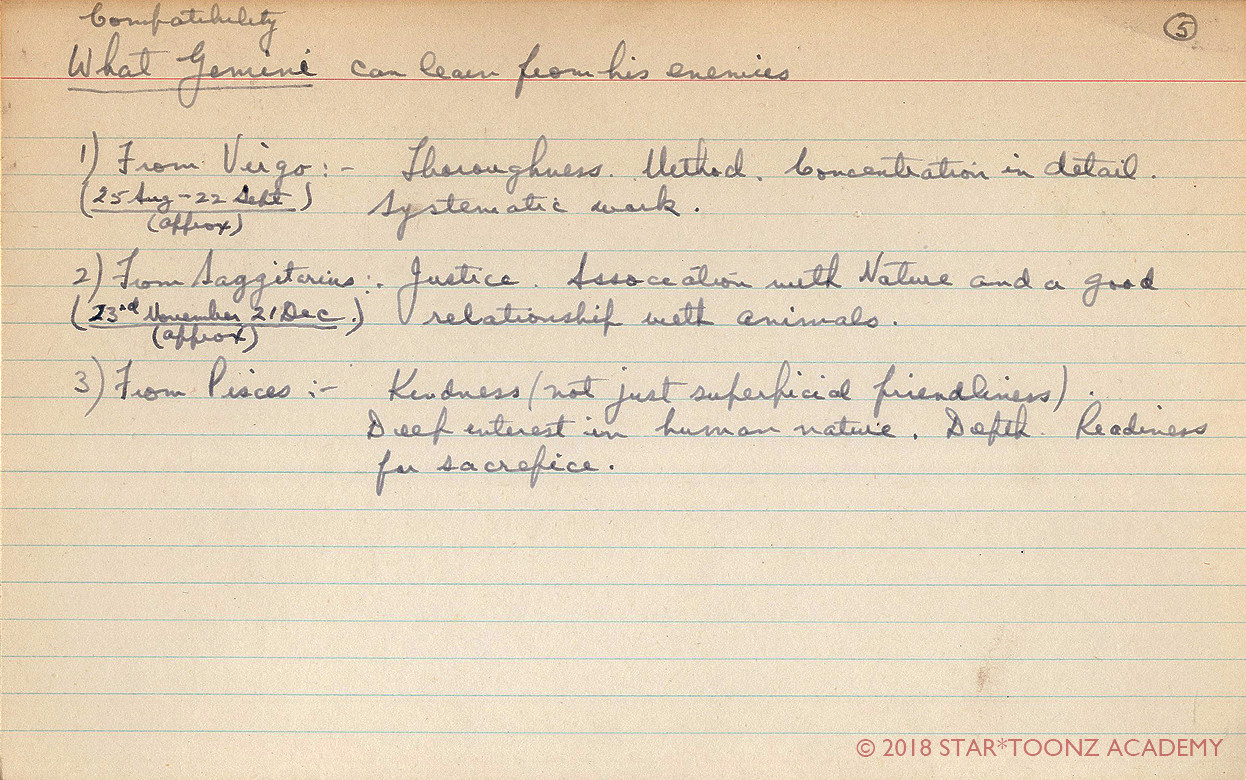 Compatibility
5
What Gemini can learn from his enemies
1) From Virgo :- Thoroughness. Method. Concentration in detail.
(25 Aug - 22 Sept) Systematic work.
(approx)
2) From Saggitarius :. Justice. Association with Nature and a good
(23rd November 21 Dec.) relationship with animals.
(approx)
3) From Pisces :- Kindness (not just superficial friendliness).
Deep interest in human nature. Depth. Readiness
for sacrifice.
© 2018 STAR*TOONZ ACADEMY